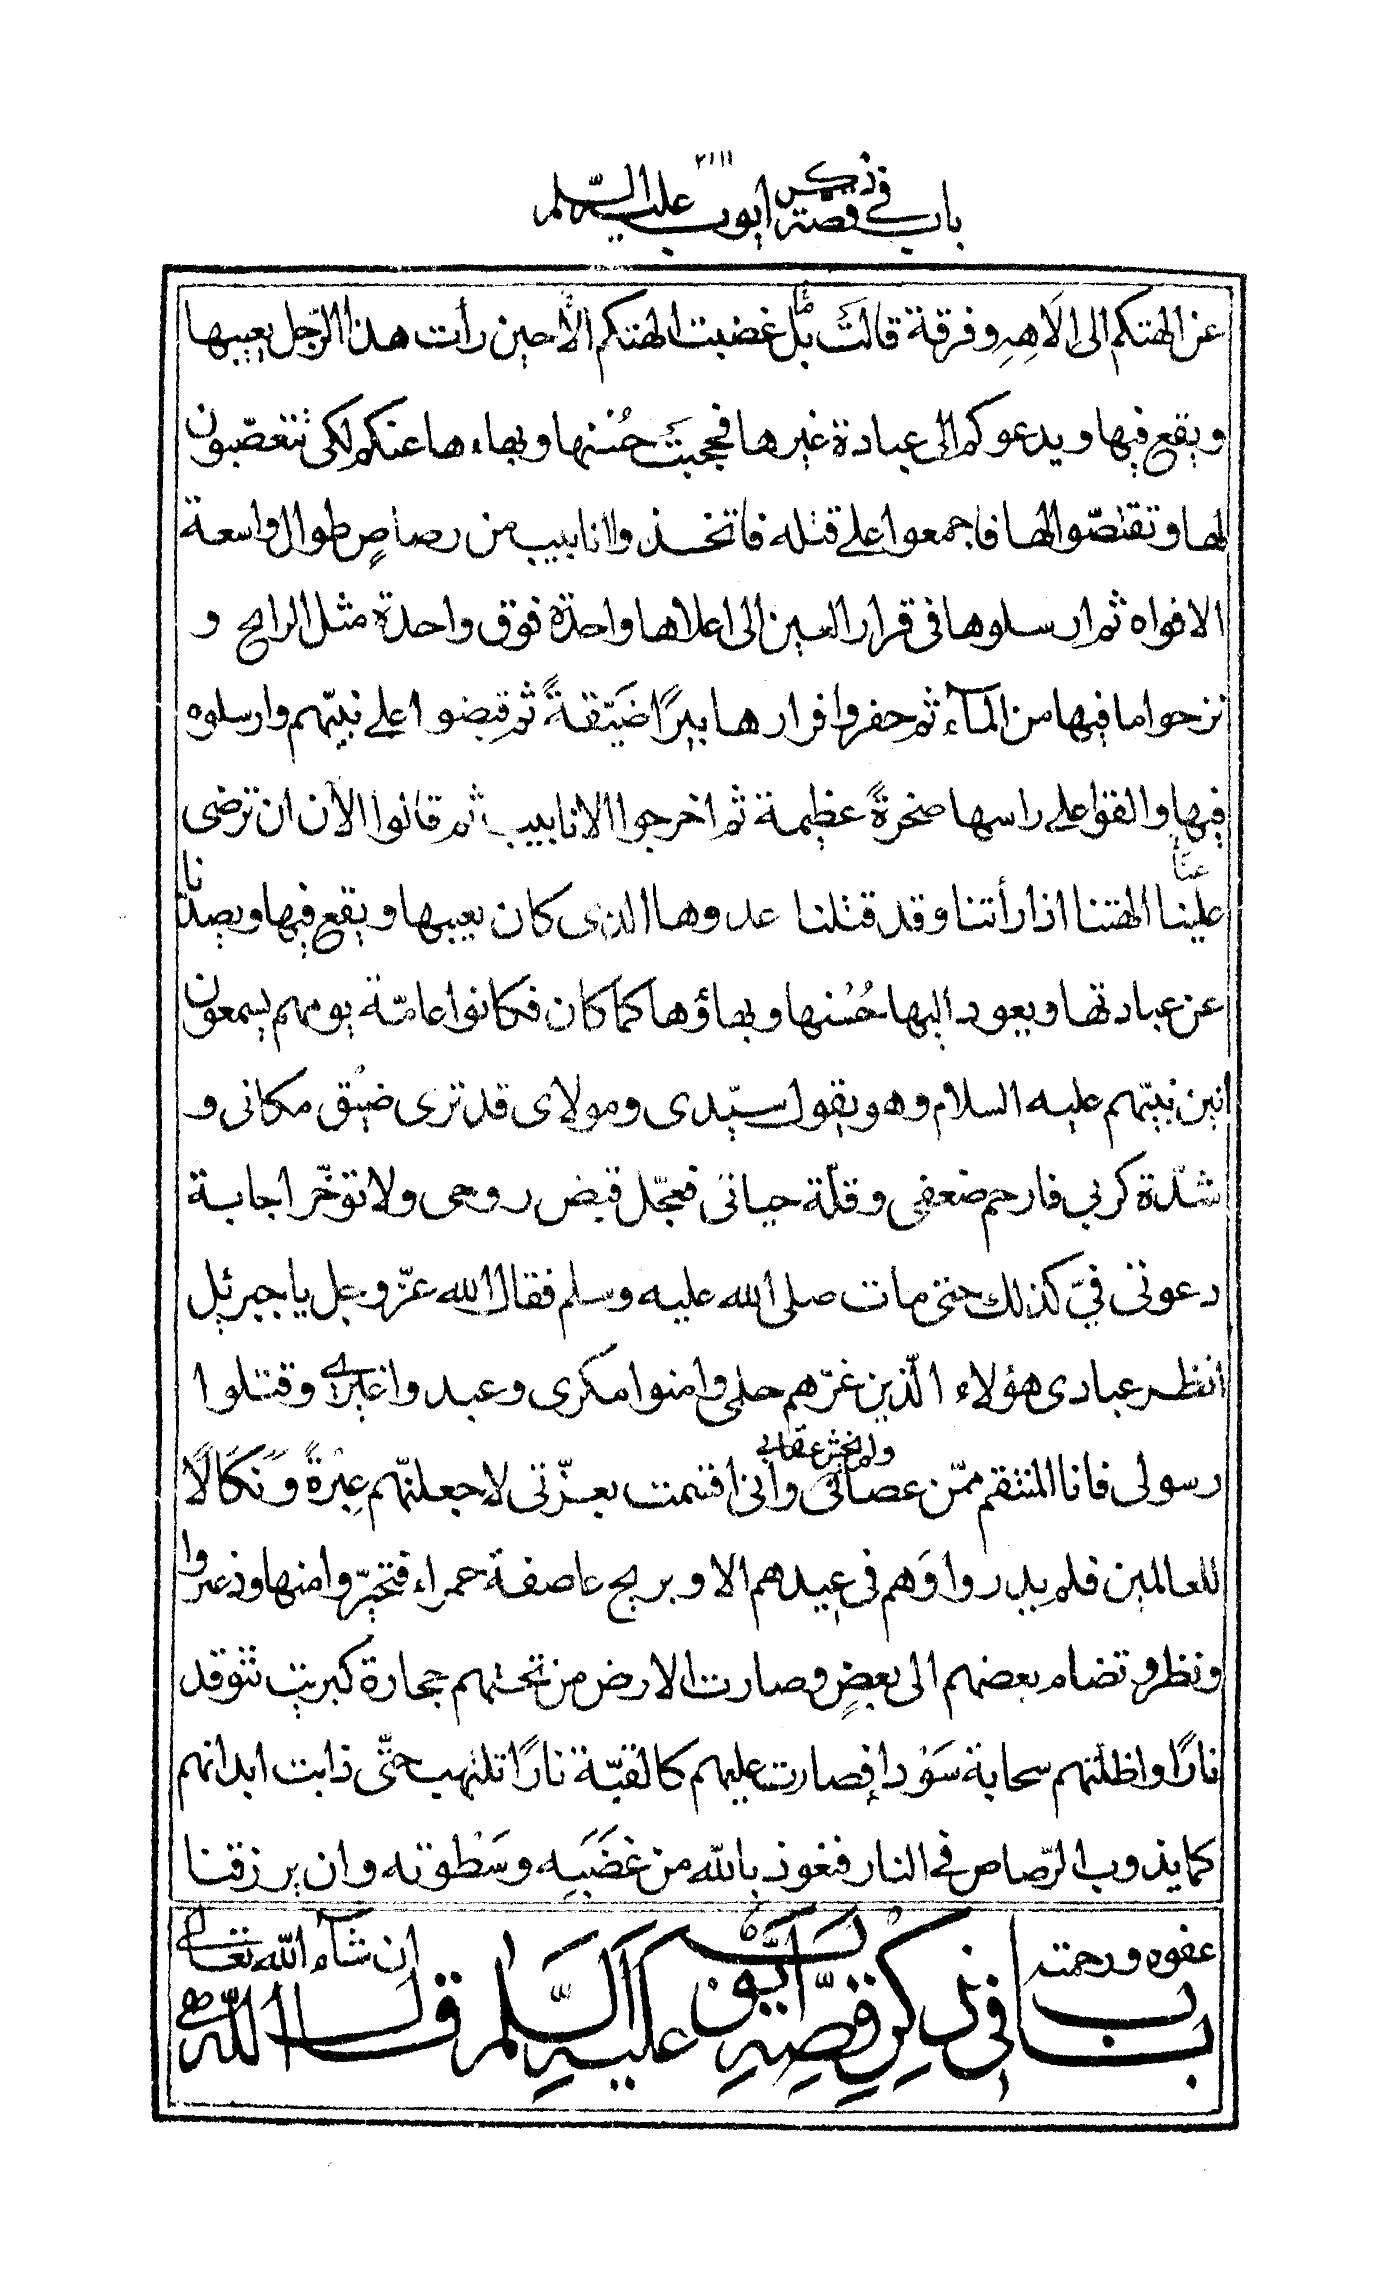 باب في ذكر قصة ايوب عليه السلم
عن الهتكم الى الاهه وفرقة قالت بل غضبت الهتكم الا حين رأت هذا الرّجل يعيبها
ويقع فيها ويدعوكم الى عبادة غيرها فحجبت حُسنها وبهاءها عنكم لكى تتعصّبون
لها وتقتصّوا لها فاجمعوا على قتله فاتخذوا انابيب من رصاصٍ طوال واسعة
الافواه ثم ارسلوها فى قرار العين الى اعلاها واحدة فوق واحدة مثل الرابح و
نزحوا ما فيها من المآء ثم حفروا فى قرارها بيرًا ضَيّقةً ثم قبضوا على نبيّهم وارسلوه
فيها والقوا على راسها صخرةً عظيمة ثم اخرجوا الانابيب ثم قالوا الآن ان ترضى
عنّا
علينا الهتنا اذا رأتنا وقد قتلنا عدوها الذى كان يعيبها ويقع فيها ويصدّنا
عن عبادتها ويعود اليها حُسنها وبهاؤها كما كان فكانوا عامّة يومهم يسمعون
انين نبيّهم عليه السلام وهو يقول سيّدى ومولاى قد ترى ضيْق مكانى و
شدّة كربي فارحم ضعفى وقلّة حياتى فعجّل قبض روحى ولا توخّر اجابة
دعوتى فيَّ كذلك حتى مات صلى الله عليه وسلم فقال الله عزّ وجل يا جبرئيل
انظر عبادى هؤلاء الّذين غرّهم حلمى وامنوا مكرى وعبدوا غيرى وقتلوا
ولم يخش عقابي
رسولى فانا المنتقم ممّن عصانى وانى اقسمت بعزّتى لاجعلنّهم عِبْرةً وَنَكَالًا
للعالمين فلم يدروا وَهم فى عيدهم الا وبريح عاصفة حمراء فتحيّروا منها وذعروا
ونظروا تضام بعضهم الى بعضٍ وصارت الارض من تحتهم حجارة كبريت تتوقد
نارًا واظلّتهم سحابة سَوْداء فصارت عليهم كالقبّة نارًا تلتهب حتّى ذابت ابدانهم
كما يذوب الرّصاص فى النار فنعوذ بالله من غضَبَه وسَطْوته وان يرزقنا
عفوه ورحمته ان شآء الله تعالى
باب فى ذكر قصّة ايّوب عليه السَّلم قال الله